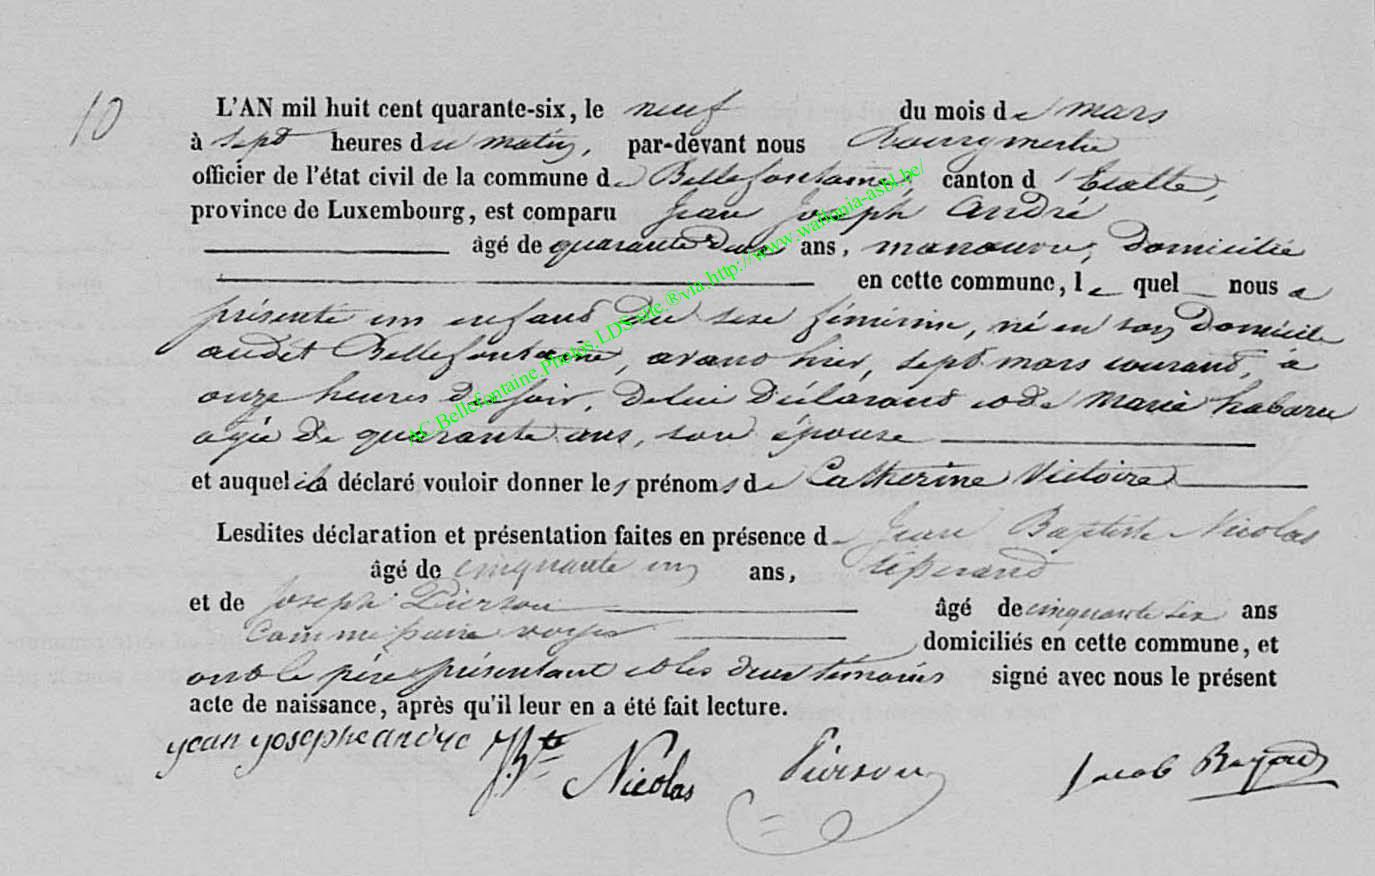 10
L'AN mil huit cent quarante-six, le neuf du mois de mars
à sept heures du matin, par-devant nous Bourgmestre
officier de l'état civil de la commune de Bellefontaine, canton d'Etalle,
province de Luxembourg, est comparu Jean Joseph André
âgé de quarante deux ans, manouvre, domicilié
en cette commune, lequel nous a
présenté un enfant du sexe féminin, né en son domicile
audit Bellefontaine, avant hier, sept mars courant, à
onze heures du soir, de lui déclarant et de Marie habaru
agée de quarante ans, son épouse
et auquel il a déclaré vouloir donner les prénoms de Catherine Victoire
Lesdites déclaration et présentation faites en présence de Jean Baptiste Nicolas
âgé de cinquante un ans,
et de Joseph Pierson âgé de cinquante six ans
Commissaire voyer domiciliés en cette commune, et
ont le père présentant et les deux témoins signé avec nous le présent
acte de naissance, après qu'il leur en a été fait lecture.
jean josephe andre JBte Nicolas Pierson Jacob
AC.Bellefontaine.Photos.LDS-site.®via.http://www.wallonia-asbl.be/